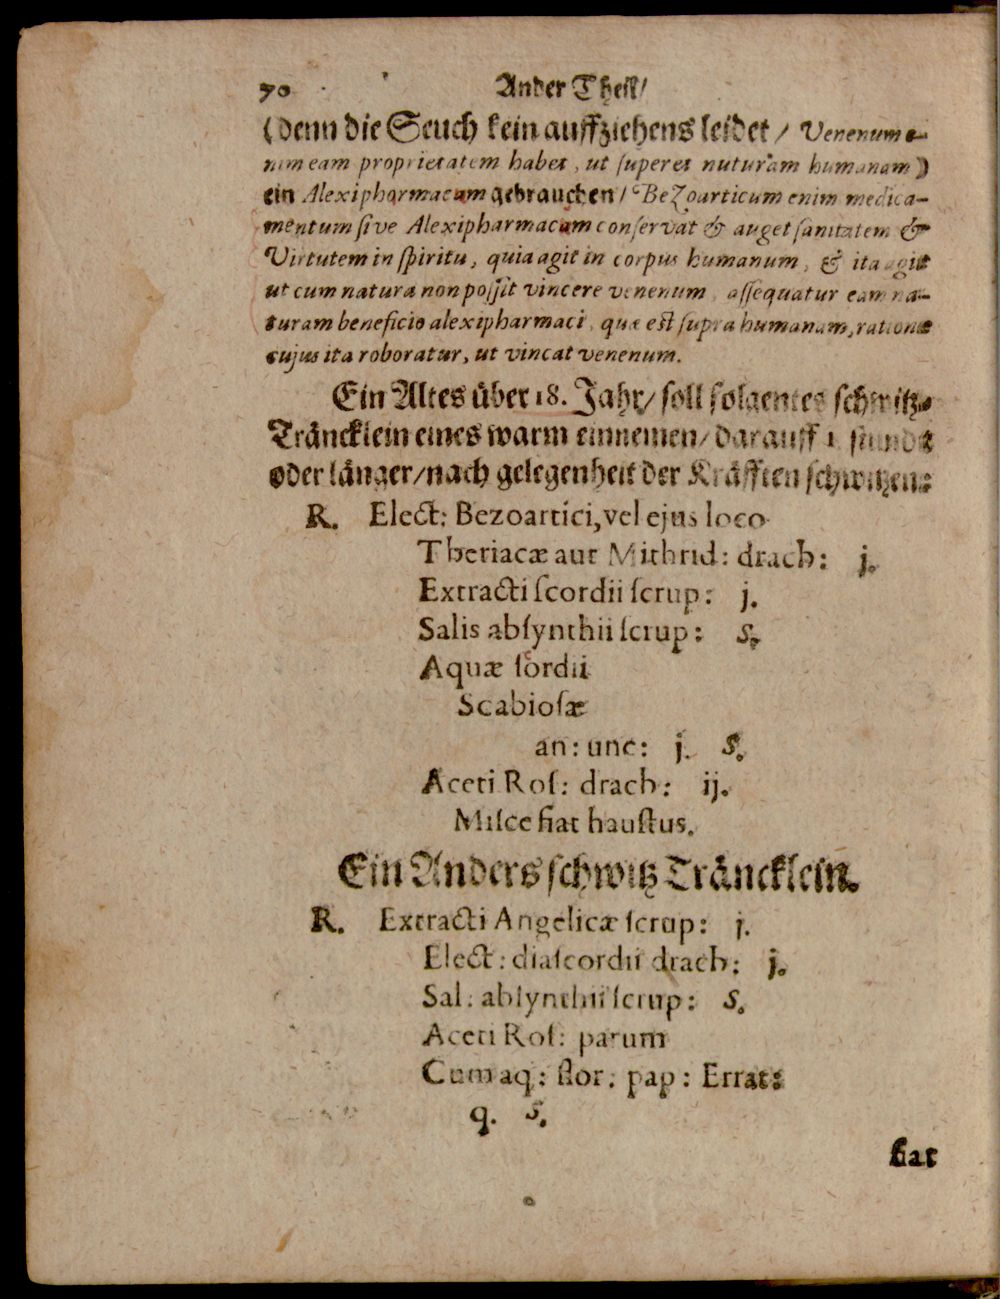 70 Ander Theil/
(denn die Seuch kein auffziehens leidet / Venenum e-
nim eam proprietatem habet, ut ſuperet naturam humanam)
ein Alexipharmacum gebrauchen / Bezoarticum enim medica-
mentum ſive Alexipharmacum conſervat & auget ſanitatem &
Virtutem in ſpiritu, quia agit in corpus humanum, & ita agit
ut cum natura non poſſit vincere venenum, aſſequatur eam na-
turam beneficio alexipharmaci, quæ eſt ſupra humanam, ratione
cujus ita roboratur, ut vincat venenum.
Ein Altes über 18. Jahr/ ſoll folgentes ſchwitz-
Träncklein eines warm einnemen/ darauff 1. ſtundt
oder länger/ nach gelegenheit der Kräfften ſchwitzen:
R. Elect: Bezoartici, vel ejus loco
Theriacæ aut Mithrid: drach: j.
Extracti ſcordii ſcrup: j.
Salis abſynthii ſcrup: S.
Aquæ ſordii
Scabioſæ
an: unc: j. S.
Aceti Roſ: drach: ij.
Miſce fiat hauſtus.
Ein Anders ſchwitz Träncklein.
R. Extracti Angelicæ ſcrup: j.
Elect: diaſcordii drach: j.
Sal: abſynthii ſcrup: S.
Aceti Roſ: parum
Cum aq: flor: pap: Errat:
q. S.
fiat